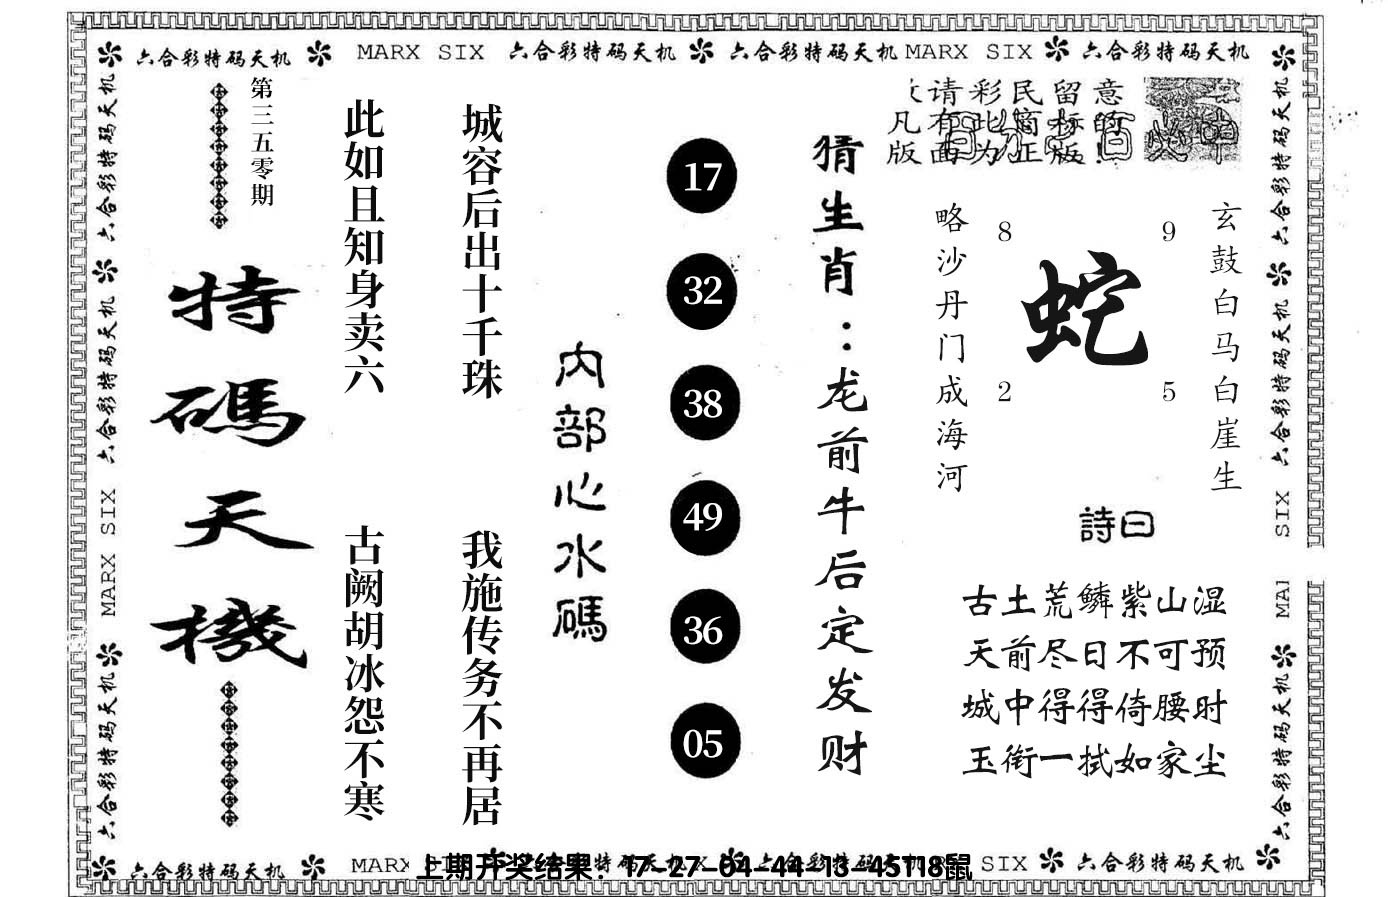 六合彩特码天机 MARX SIX 六合彩特码天机 六合彩特码天机 MARX SIX 六合彩特码天机
六合彩特码天机
六合彩特码天机
MARX SIX
六合彩特码天机
第三五零期
特碼天機
此如且知身卖六
古阙胡冰怨不寒
城容后出十千珠
我施传务不再居
内部心水碼
17
32
38
49
36
05
猜生肖：龙前牛后定发财
请彩民留意
凡有此商标的
版面为正版!
略沙丹门成海河
8
9
蛇
2
5
玄鼓白马白崖生
詩曰
古土荒鳞紫山湿
天前尽日不可预
城中得得倚腰时
玉衔一拭如家尘
六合彩特码天机
六合彩特码天机
SIX
MA
六合彩特码天机
六合彩特码天机 MARX
上期开奖结果：17-27-04-44-13-45T18鼠
SIX 六合彩特码天机